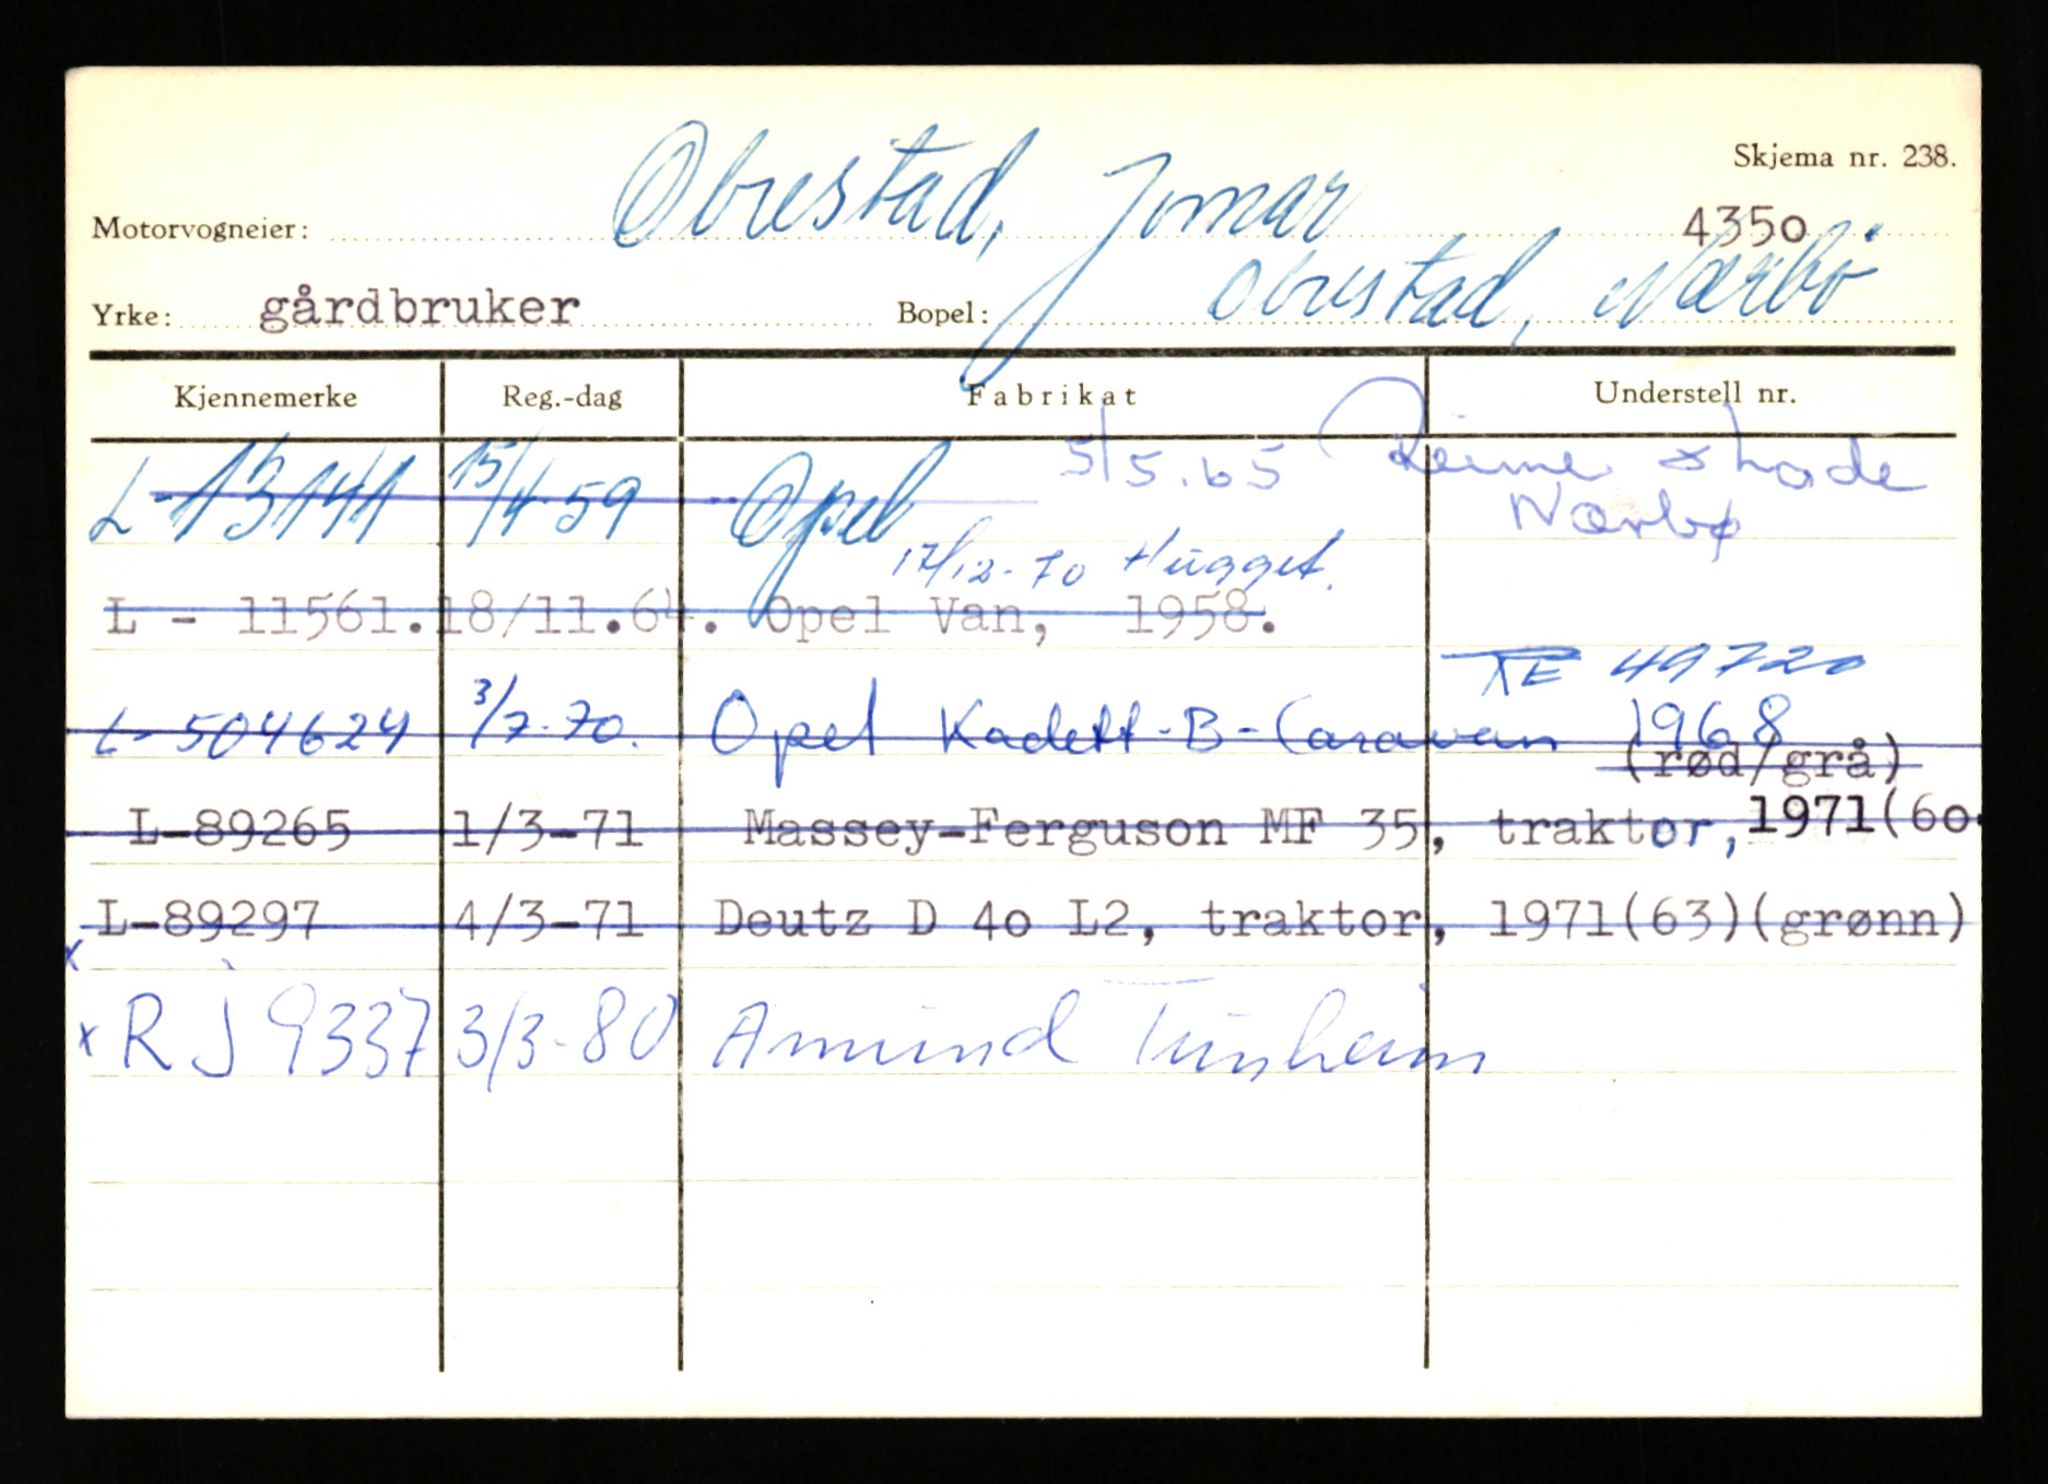 Skjema nr. 238.
Motorvogneier: Obrestad, Jomar 4350
Yrke: gårdbruker Bopel: Obrestad, Nærbö
Kjennemerke Reg.-dag Fabrikat Understell nr.
L-13141 15/4-59 Opel 5/5.65 Reime
Nærbø
17/12-70 Hugget.
L - 11561. 18/11.64. Opel Van, 1958.
49720
L-504624 3/7-70. Opel Kadett-B-Caravan 1968
(rød/grå)
L-89265 1/3-71 Massey-Ferguson MF 35, traktor, 1971(60
L-89297 4/3-71 Deutz D 40 L2, traktor, 1971(63)(grønn)
x
x RJ 9337 3/3-80 Amund Tunheim